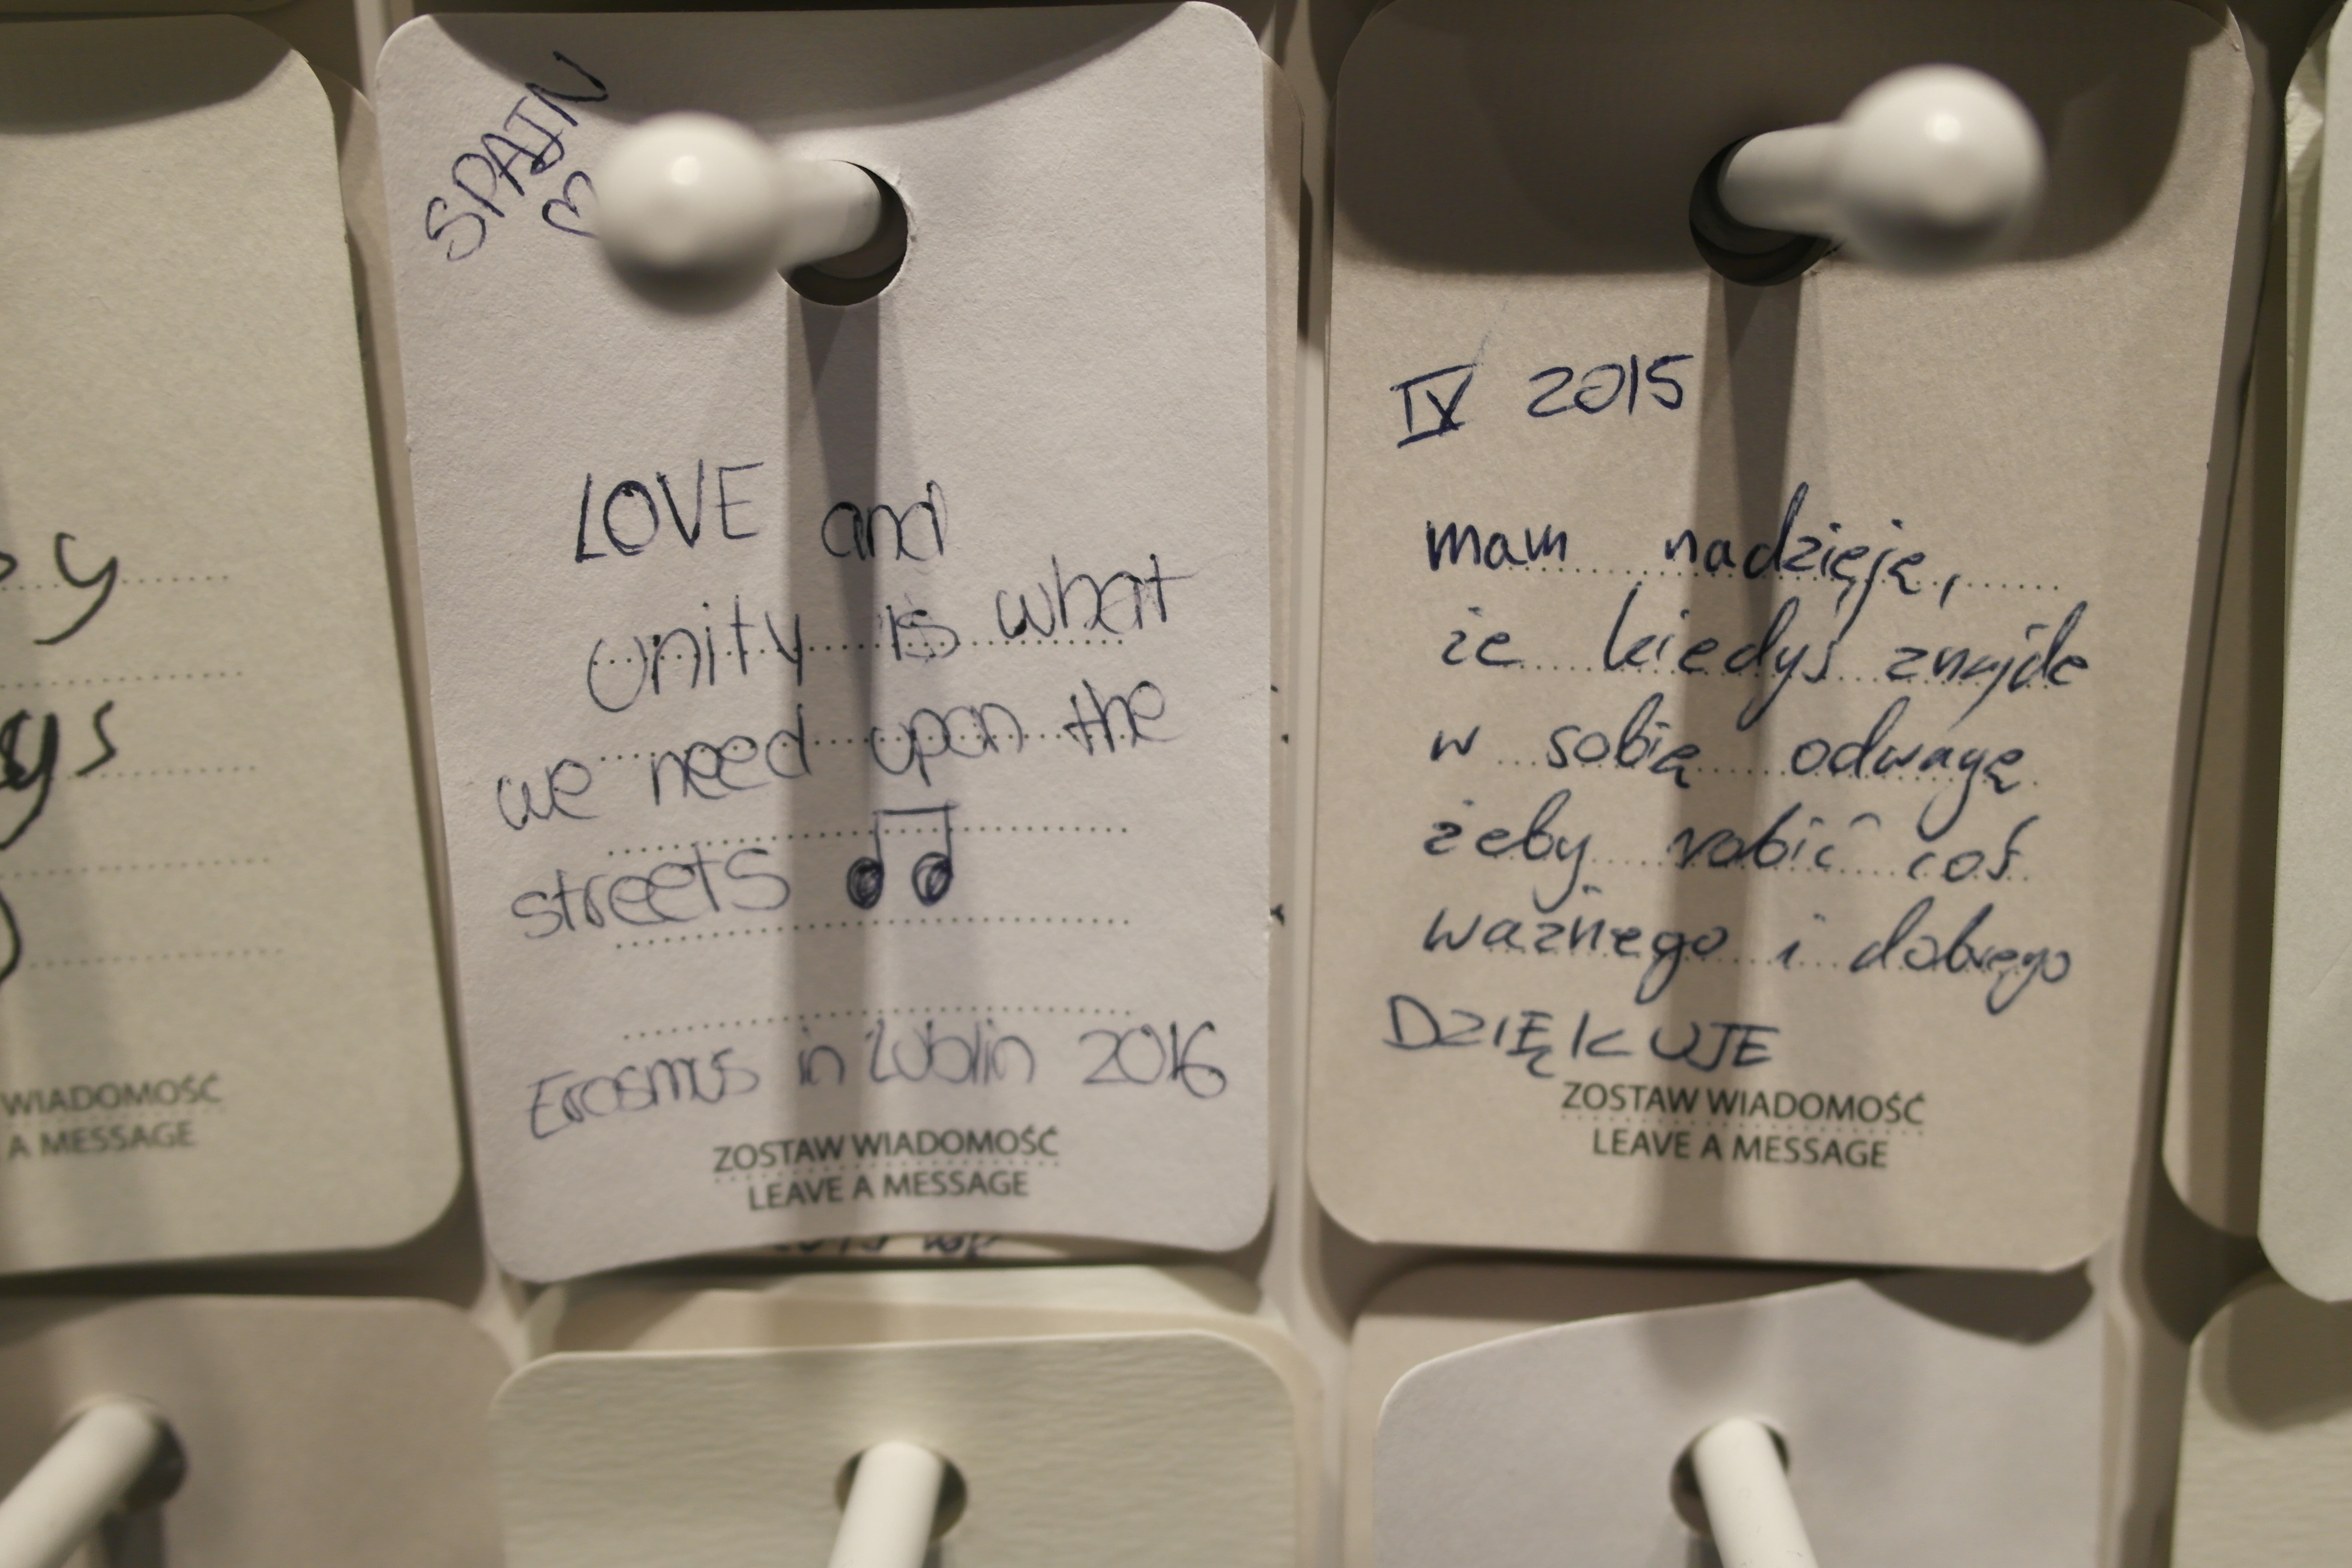 SPAIN
LOVE and
unity is what
we need upon the
streets
Erasmus in Lublin 2016
ZOSTAW WIADOMOŚĆ
LEAVE A MESSAGE
IX 2015
mam nadzięję,
że kiedyś znajde
w sobię odwagę
żeby robić coś
ważnego i dobrego
DZIĘKUJE
ZOSTAW WIADOMOŚĆ
LEAVE A MESSAGE
WIADOMOŚĆ
A MESSAGE